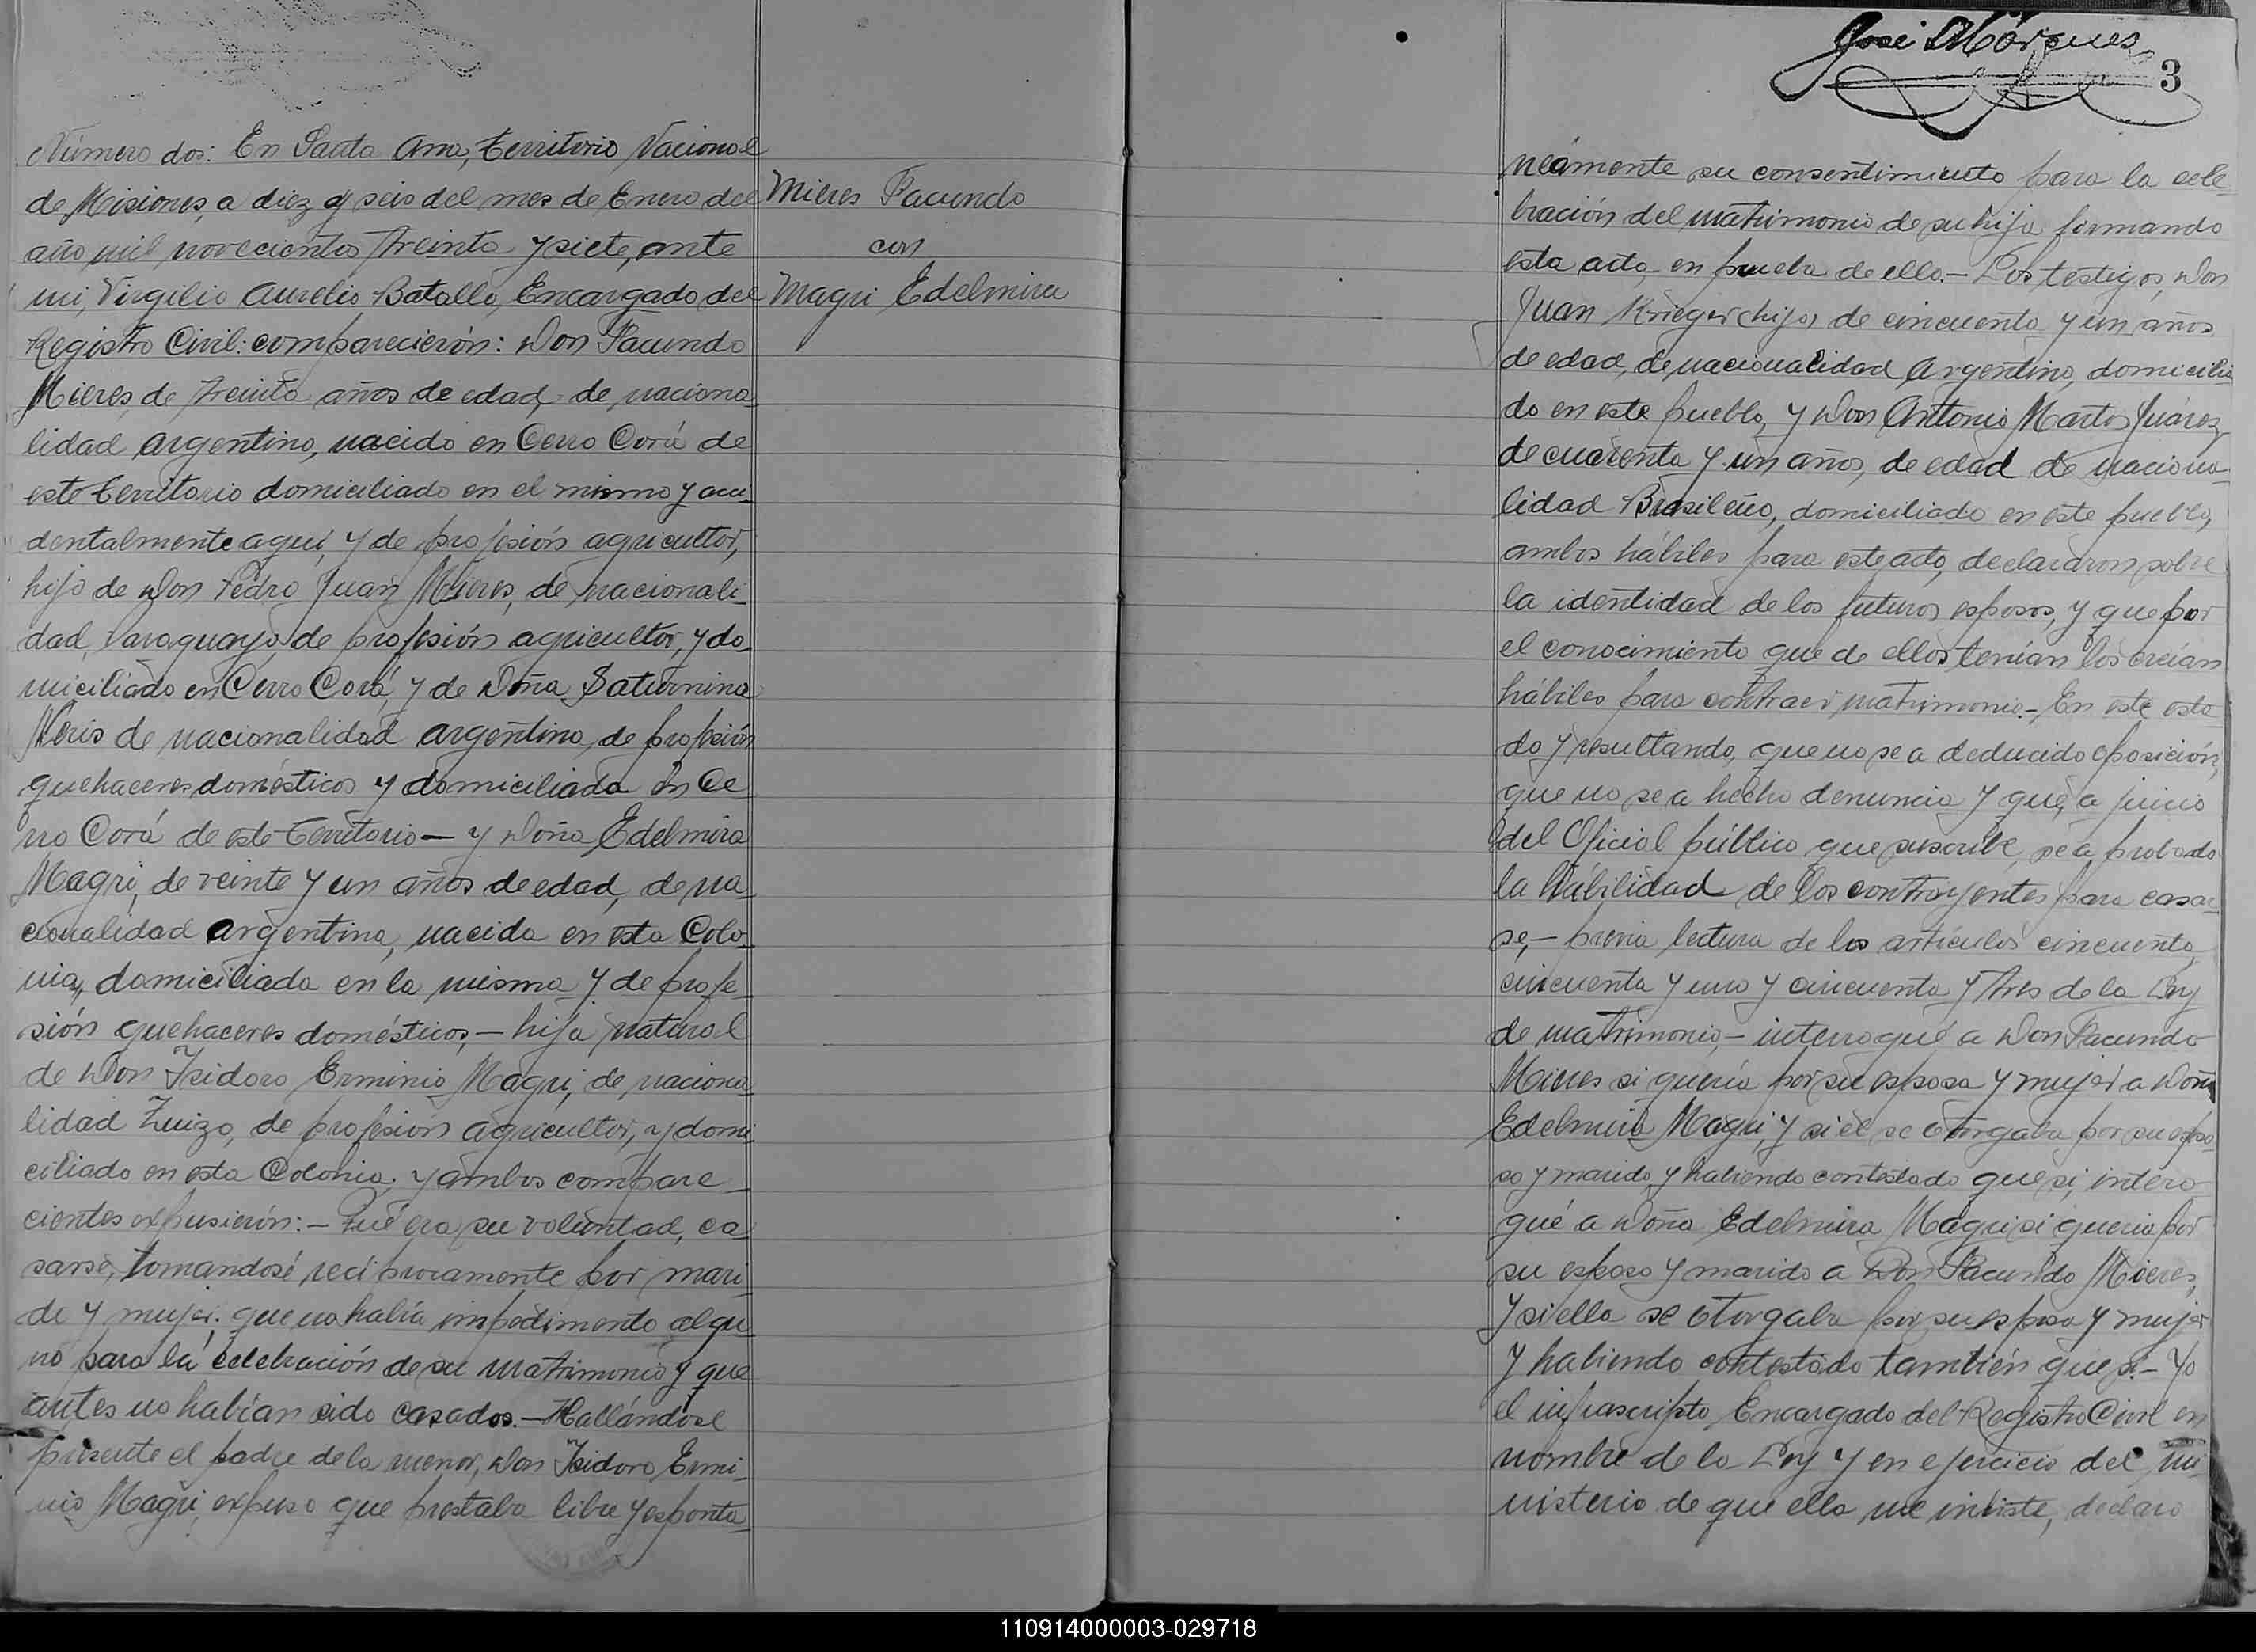 Número dos: En Santa Ana, Territorio Nacional
de Misiones, a diez y seis del mes de Enero del
año mil novecientos treinta y siete, ante
mi, Virgilio Aurelio Batalla, Encargado del
Registro Civil: comparecierón: Don Facundo
Mieres de treinta años de edad, de naciona_
lidad argentino, nacido en Cerro Corá de
este Territorio domiciliado en el mismo y acci_
dentalmente aquí, y de profesión agricultor,
hijo de Don Pedro Juan Mieres, de nacionali_
dad Paraguayo, de profesión agricultor, y do_
miciliado en Cerro Corá, y de Doña Saturnina
Neris de nacionalidad argentina, de profesión
quehaceres domésticos y domiciliada en Ce
rro Corá de este Territorio — y Doña Edelmira
Magri, de veinte y un años de edad, de na_
cionalidad argentina, nacida en esta Colo_
nia, domiciliada en la misma y de profe_
sión quehaceres domésticos, — hija natural
de Don Isidoro Erminio Magri, de naciona_
lidad Zuizo, de profesión agricultor, y domi_
ciliado en esta Colonia; y ambos compare_
cientes expusierón: — Qué era su voluntad, ca_
sarse, tomandosé recíprocamente por mari_
do y mujer; que no había impedimento algu_
no para la celebración de su matrimonio y que
antes no habían sido casados. — Hallándose
presente el padre de la menor, Don Isidoro Ermi_
nio Magri, expuso que prestaba libre y esponta_
Mieres Facundo
con
Magri Edelmira
José Márques
3
neámente su consentimiento para la cele_
bración del matrimonio de su hija firmando
esta acta, en prueba de ello. — Los testigos, Don
Juan Krieger (hijo) de cincuenta y un años
de edad, de nacionalidad Argentino, domicilia
do en este pueblo, y Don Antonio Marto Juárez
de cuarenta y un años, de edad de naciona_
lidad Brasileño, domiciliado en este pueblo,
ambos hábiles para este acto, declararon sobre
la identidad de los futuros esposos, y que por
el conocimiento que de ellos tenían los creían
hábiles para contraer matrimonio. — En este esta
do y resultando, que no se a deducido oposición,
que no se a hecho denuncia y que, a juicio
del Oficial público que suscribe, se a probado
la hábilidad de los contrayentes para casar_
se, — previa lectura de los artículos cincuenta,
cincuenta y uno y cincuenta y tres de la Ley
de matrimonio, — interrogué a Don Facundo
Mieres si quería por su esposa y mujer a Doña
Edelmira Magri, y si el se otorgaba por su espo
so y marido, y habiendo contestado que si, intero_
gué a Doña Edelmira Magri si queria por
su esposo y marido a Don Facundo Mieres,
y si ella se otorgaba por su esposa y mujer
y habiendo contestado también que si. — Yo
el infrascripto Encargado del Registro Civil en
nombre de la Ley y en ejercicio del mi
nisterio de que ella me inviste, declaro
110914000003-029718